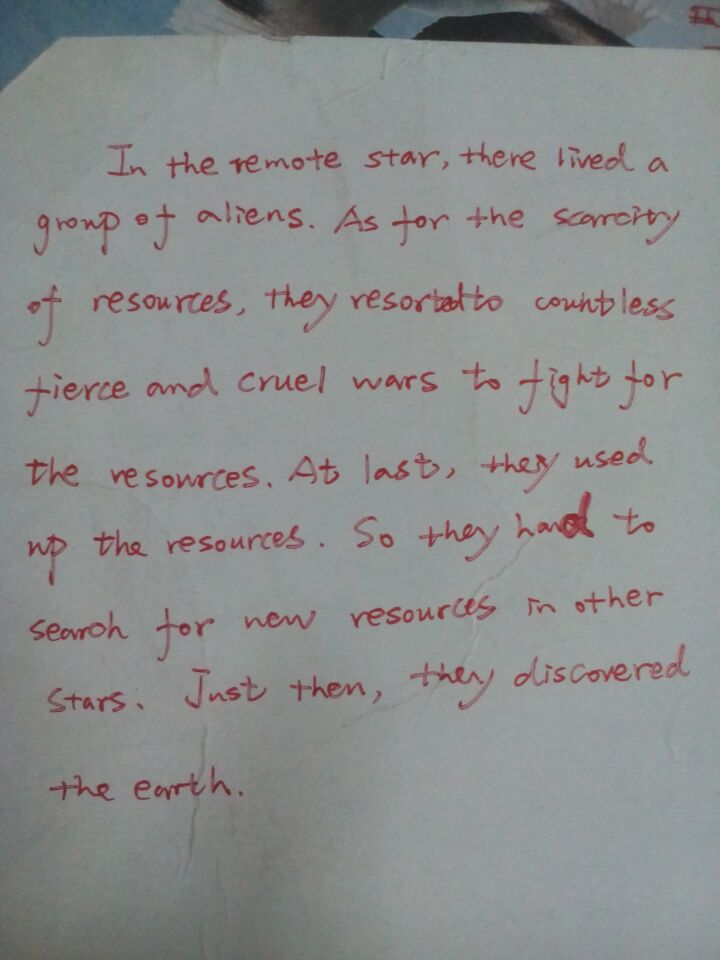 In the remote star, there lived a
group of aliens. As for the scarcity
of resources, they resorted to countless
fierce and cruel wars to fight for
the resources. At last, they used
up the resources. So they had to
search for new resources in other
stars. Just then, they discovered
the earth.